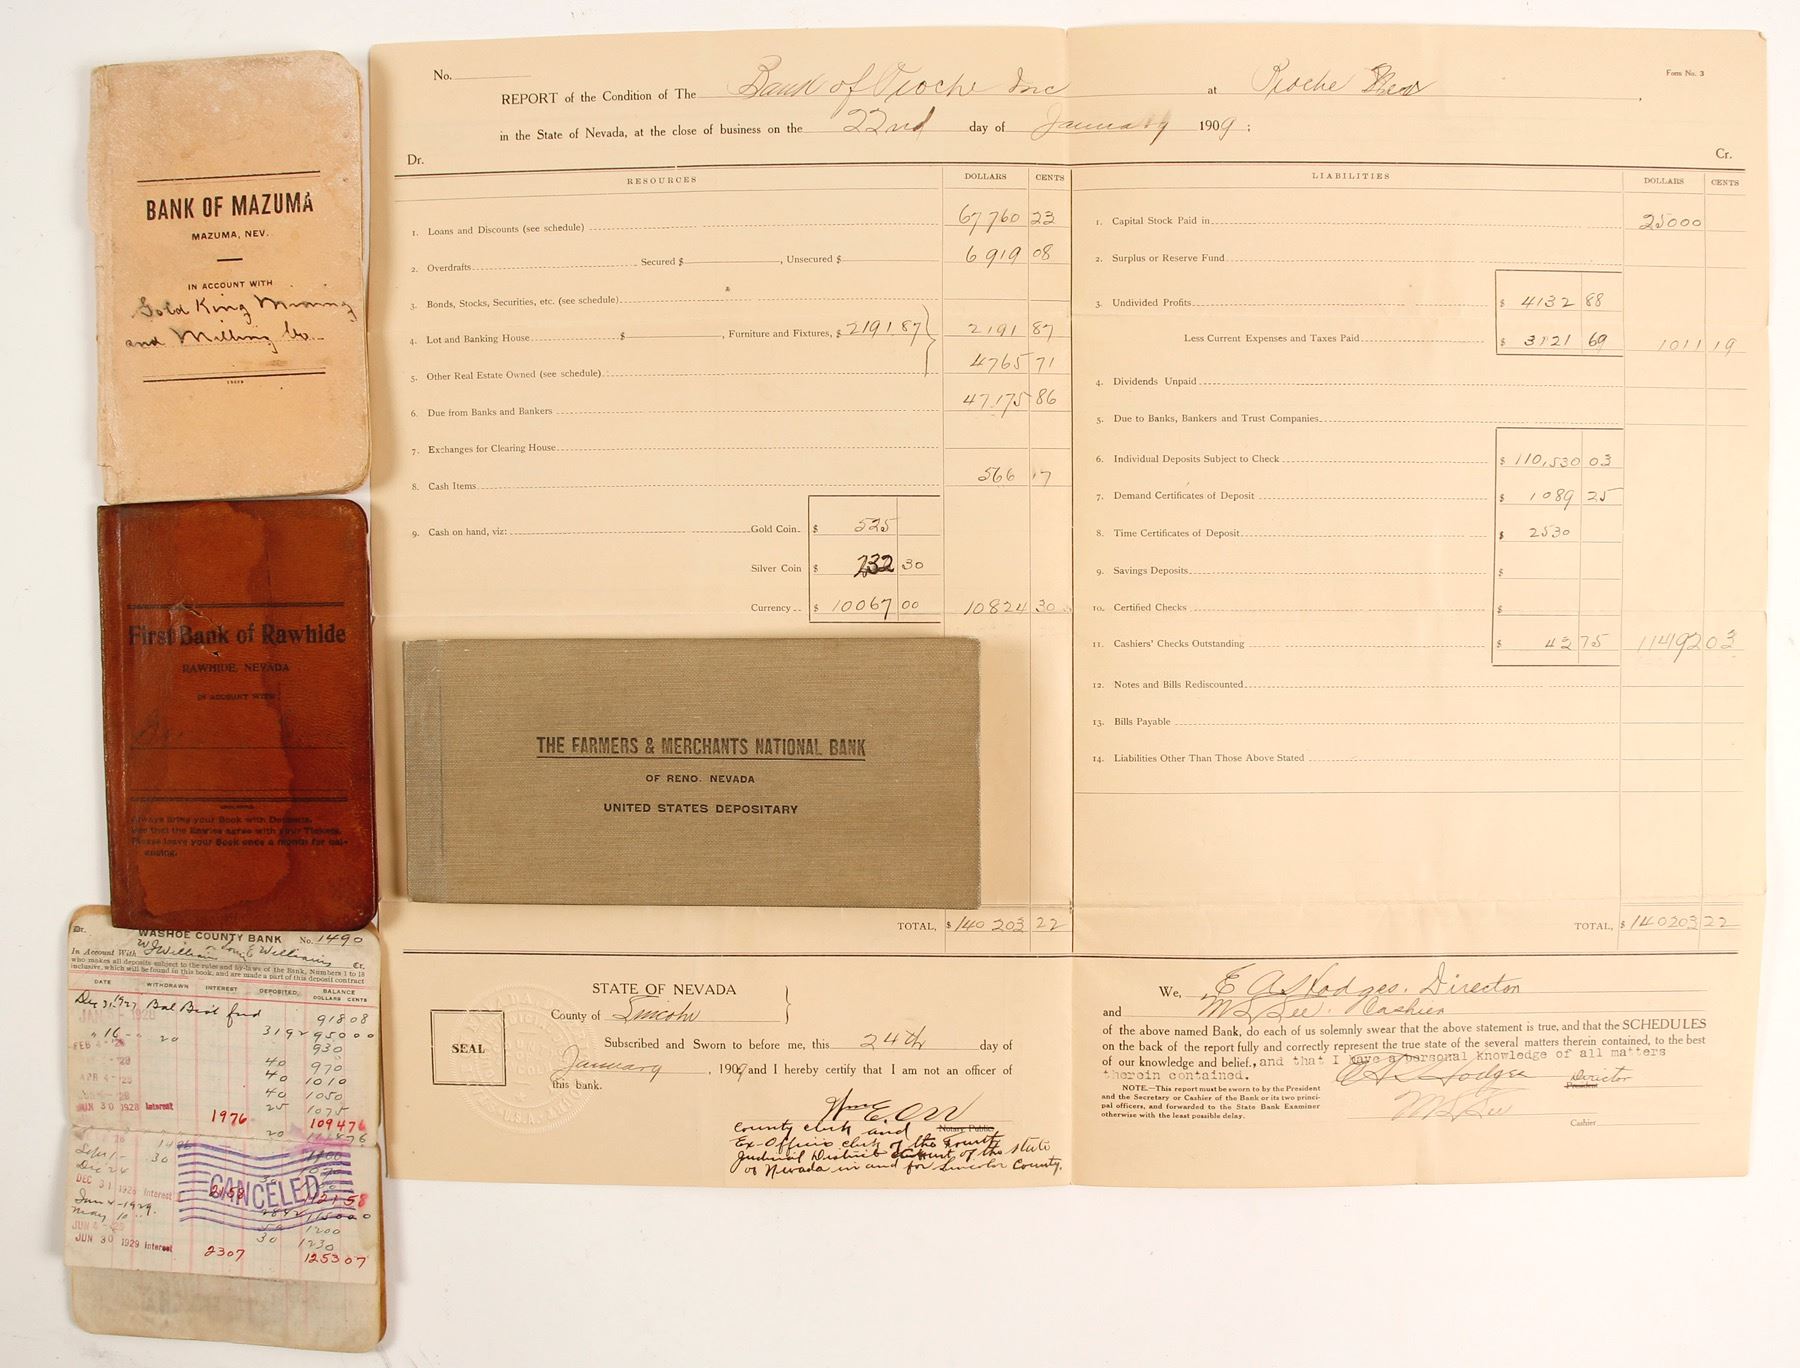 BANK OF MAZUMA
MAZUMA, NEV.
IN ACCOUNT WITH
Gold King Mining
and Milling Co.
First Bank of Rawhide
RAWHIDE, NEVADA
IN ACCOUNT WITH
Always Bring your Book with Deposits.
See that the Entries agree with your Tickets.
Please leave your Book once a month for bal-
ancing.
Dr. WASHOE COUNTY BANK No. 1490
In Account With W J Williams or E Williams Cr.
who makes all deposits subject to the rules and by-laws of the Bank, Numbers 1 to 18
inclusive, which will be found in this book, and are made a part of this deposit contract
DATE WITHDRAWN INTEREST DEPOSITED, BALANCE
DOLLARS CENTS
Dec 31, 1927 Bal Bro't ford 918 08
JAN 5 - 1928
" 16 - " 31 92 950 00
FEB 4 - '28 20 930
40 970
APR 4 - '28 40 1010
40 1050
JUN 30 1928 Interest 1976 25 1075
1094 76
20
Sept 1 - 30
Dec 24
DEC 31 1928 Interest 2158 1121 58
CANCELED
Jan 4 - 1929. 28 42 1150 00
May 10 " 50 1200
JUN 4 - '29 30 1230
JUN 30 1929 Interest 2307 1253 07
No.
Form No. 3
REPORT of the Condition of The Bank of Pioche Inc at Pioche Nev
in the State of Nevada, at the close of business on the 22nd day of January 1909;
Dr. Cr.
RESOURCES DOLLARS CENTS
1. Loans and Discounts (see schedule) 67 760 23
2. Overdrafts Secured $ , Unsecured $ 6 919 08
3. Bonds, Stocks, Securities, etc. (see schedule)
4. Lot and Banking House $ , Furniture and Fixtures, $ 2191.87 2191 87
5. Other Real Estate Owned (see schedule) 4765 71
6. Due from Banks and Bankers 47 175 86
7. Exchanges for Clearing House
8. Cash Items 566 17
9. Cash on hand, viz: Gold Coin $ 525
Silver Coin $ 232 30
Currency $ 10067 00 10824 30
TOTAL, $ 140 203 22
LIABILITIES DOLLARS CENTS
1. Capital Stock Paid in 25000
2. Surplus or Reserve Fund
3. Undivided Profits $ 4132 88
Less Current Expenses and Taxes Paid $ 3121 69 1011 19
4. Dividends Unpaid
5. Due to Banks, Bankers and Trust Companies
6. Individual Deposits Subject to Check $ 110,530 03
7. Demand Certificates of Deposit $ 1089 25
8. Time Certificates of Deposit $ 2530
9. Savings Deposits $
10. Certified Checks $
11. Cashiers' Checks Outstanding $ 42 75 114192 03
12. Notes and Bills Rediscounted
13. Bills Payable
14. Liabilities Other Than Those Above Stated
TOTAL, $ 140203 22
THE FARMERS & MERCHANTS NATIONAL BANK
OF RENO, NEVADA
UNITED STATES DEPOSITARY
STATE OF NEVADA
County of Lincoln
SEAL
Subscribed and Sworn to before me, this 24th day of
January, 1909 and I hereby certify that I am not an officer of
this bank.
Wm E. Orr
Notary Public
County clerk and
Ex-Officio clerk of the Fourth
Judicial District Court of the State
of Nevada in and for Lincoln County.
We, E A Hodges. Director
and M L Lee. Cashier
of the above named Bank, do each of us solemnly swear that the above statement is true, and that the SCHEDULES
on the back of the report fully and correctly represent the true state of the several matters therein contained, to the best
of our knowledge and belief., and that I have a personal knowledge of all matters
therein contained.
E A Hodges Director
President
NOTE.—This report must be sworn to by the President
and the Secretary or Cashier of the Bank or its two princi-
pal officers, and forwarded to the State Bank Examiner
otherwise with the least possible delay.
M L Lee
Cashier